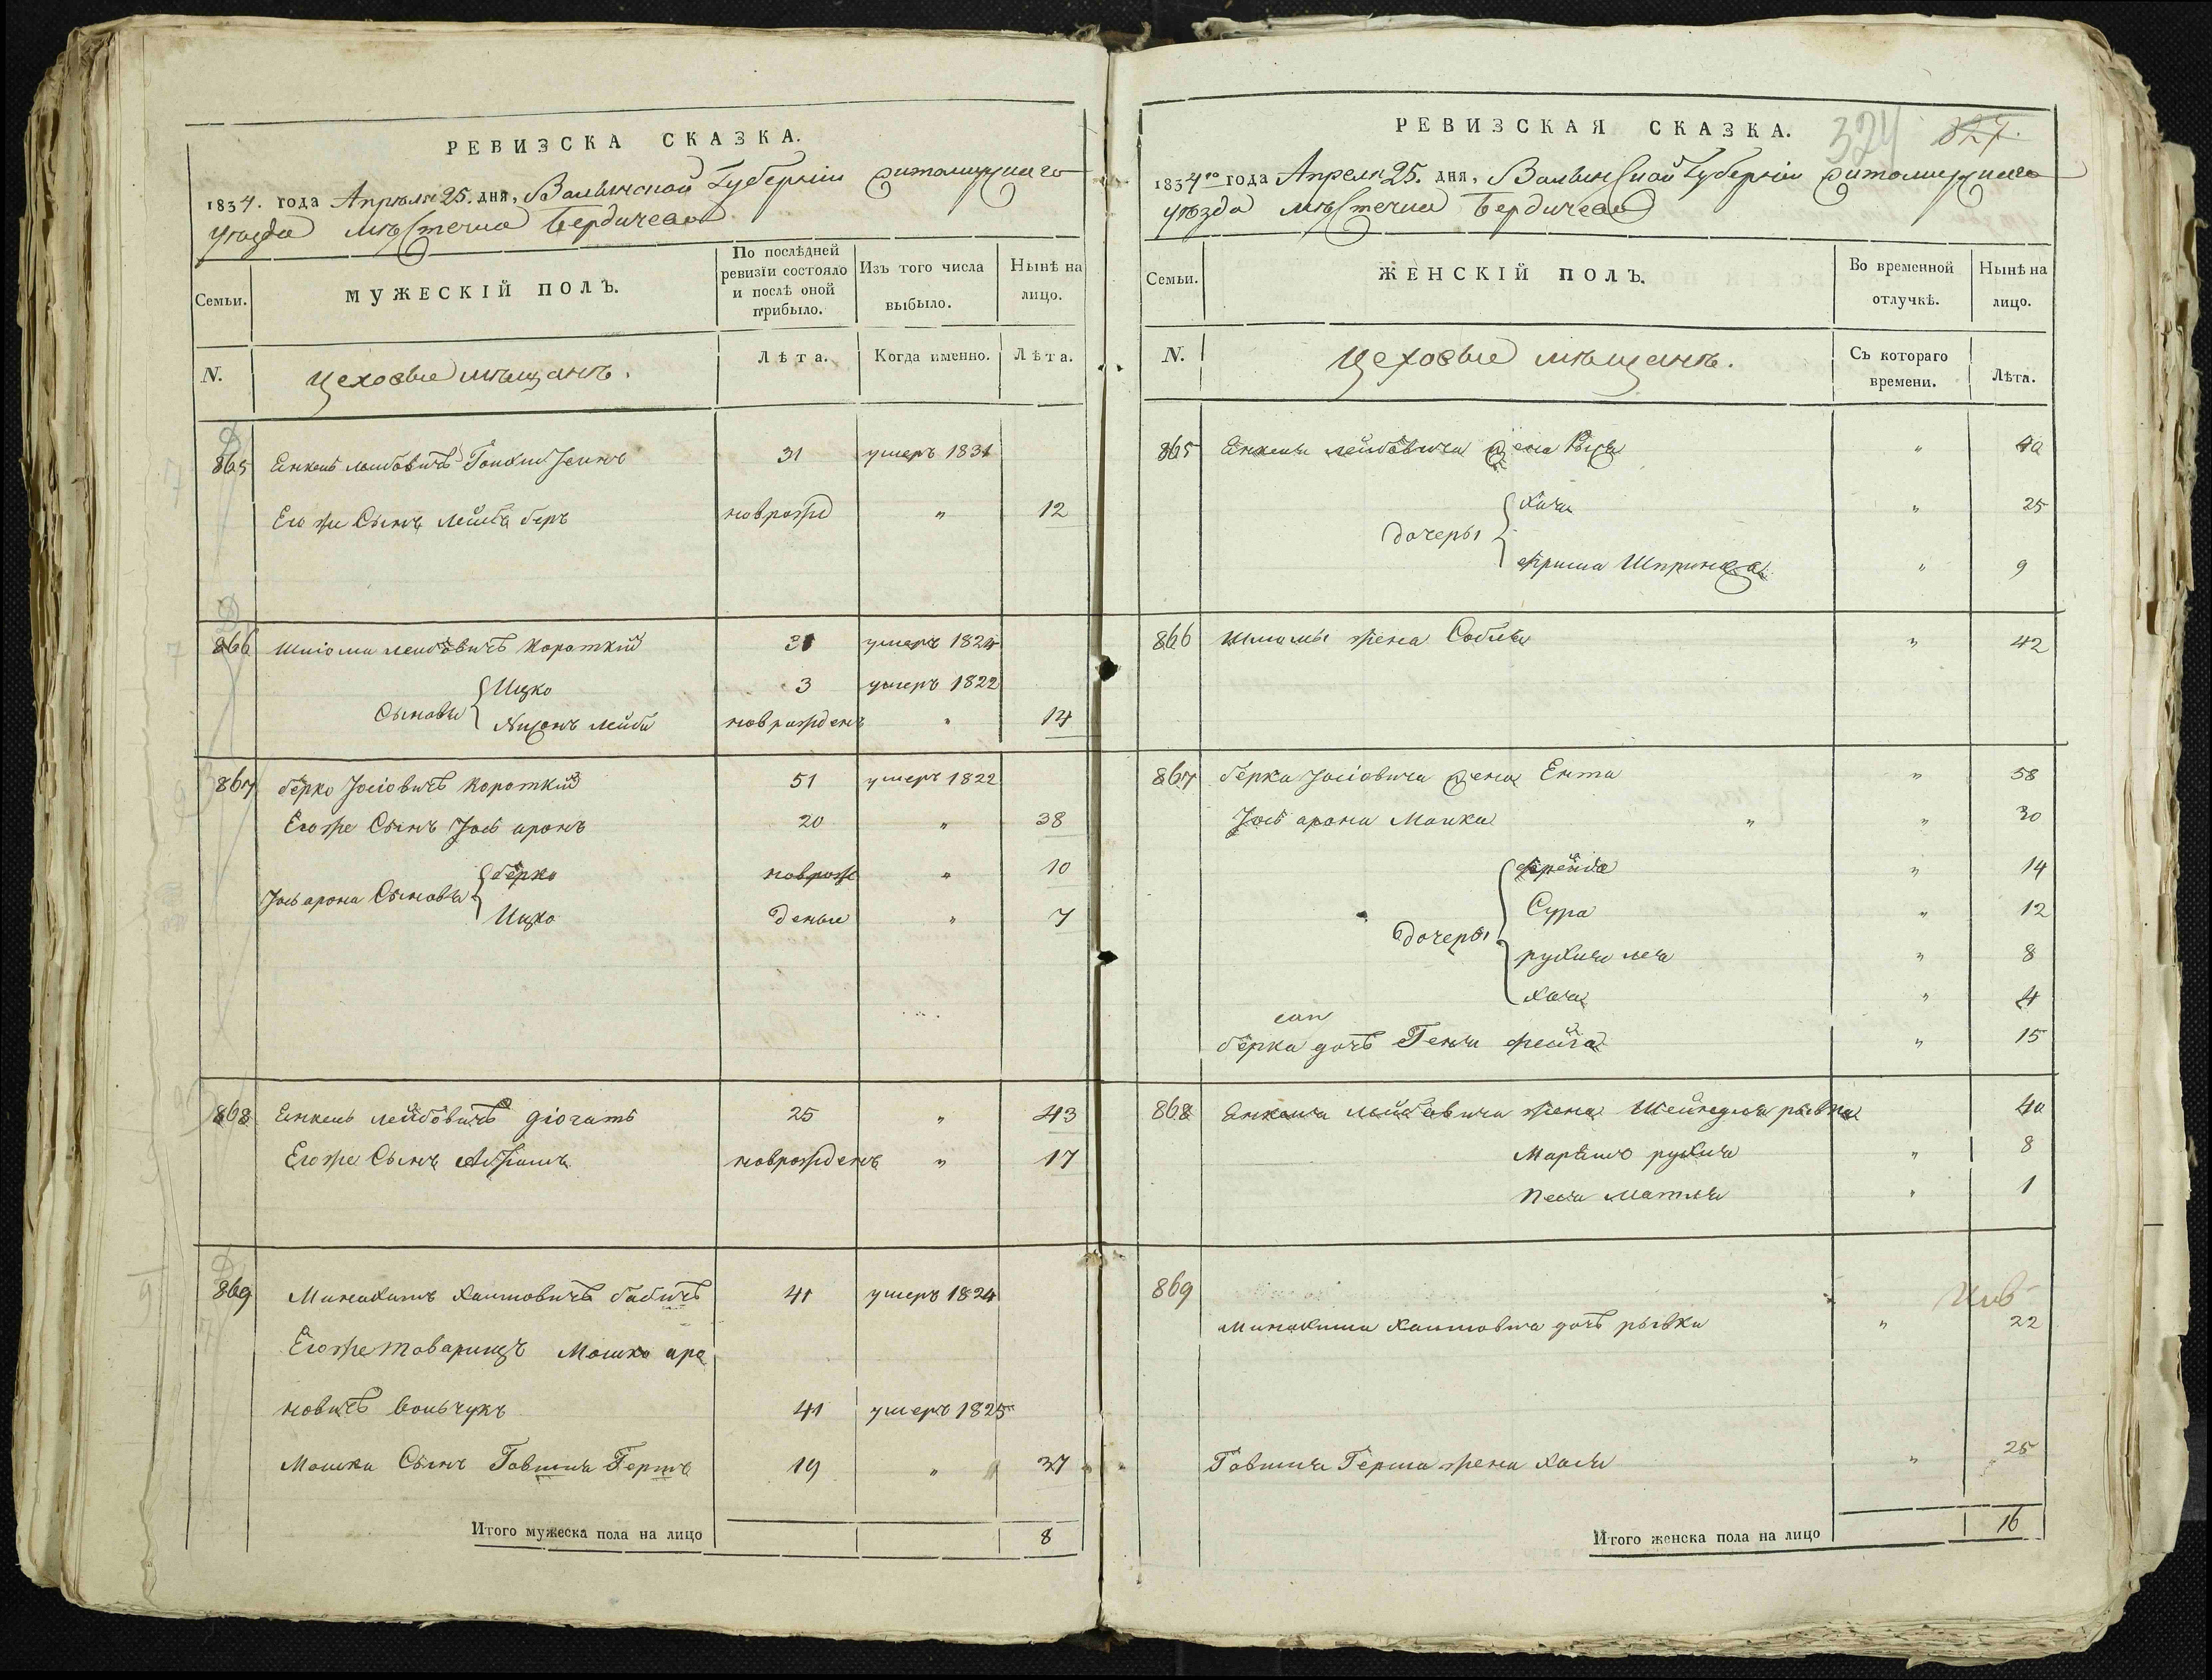 РЕВИЗСКА СКАЗКА.
1834. года Апрѣля 25. дня, Волынской Губерніи Житомирскаго
уѣзда мѣстечка Бердичева
Семьи.
МУЖЕСКІЙ ПОЛЪ.
По послѣдней ревизіи состояло и послѣ оной прибыло.
Изъ того числа выбыло.
Нынѣ на лицо.
N.
Цеховые мѣщанъ.
Лѣта.
Когда именно.
Лѣта.
865 Енкель Лейбовичъ 31 умеръ 1831
Его же Сынъ Лейба беръ новрожд " 12
866 Шліома Лейбовичъ Короткій 31 умеръ 1824
Сыновья Ицко 3 умеръ 1822
Нисонъ Лейба новрожденъ " 14
867 берко Іосіовичъ Короткій 51 умеръ 1822
Его же Сынъ Іось аронъ 20 " 38
Іось арона Сыновья берко новрож " 10
Ицко деные " 7
868 Енкель Лейбовичъ 25 " 43
Его же Сынъ новрожденъ " 17
869 Минахимъ Хаимовичъ бабичъ 41 умеръ 1824
Его же товарищъ Мошко аро
новичъ 41 умеръ 1825
Мошки Сынъ Говшия Гершъ 19 " 37
Итого мужеска пола на лицо 8
РЕВИЗСКАЯ СКАЗКА.
324
327.
1834го года Апреля 25. дня, Волынской Губерніи Житомирскаго
уѣзда мѣстечка Бердичева
Семьи.
ЖЕНСКІЙ ПОЛЪ.
Во временной отлучкѣ.
Нынѣ на лицо.
N.
Цеховые мѣщанъ.
Съ котораго времени.
Лѣта.
865 Енкеля Лейбовича жена " 40
Дочеры Хая " 25
Фрима Шпринца " 9
866 Шліомы жена Собля " 42
867 берка Іосіовича жена Ента " 58
Іось арона Малка " " 30
Дочеры фрейда " 14
Сура " 12
рухля лея " 8
Хая " 4
берка дочь Геня фейга " 15
868 Енкеля Лейбовича жена Шейндля рывка 40
Маріямъ рухля " 8
Песя Матля " 1
869
Минахима Хаимовича дочь рывка " 22
Говшия Герша жена Хая " 25
Итого женска пола на лицо 16